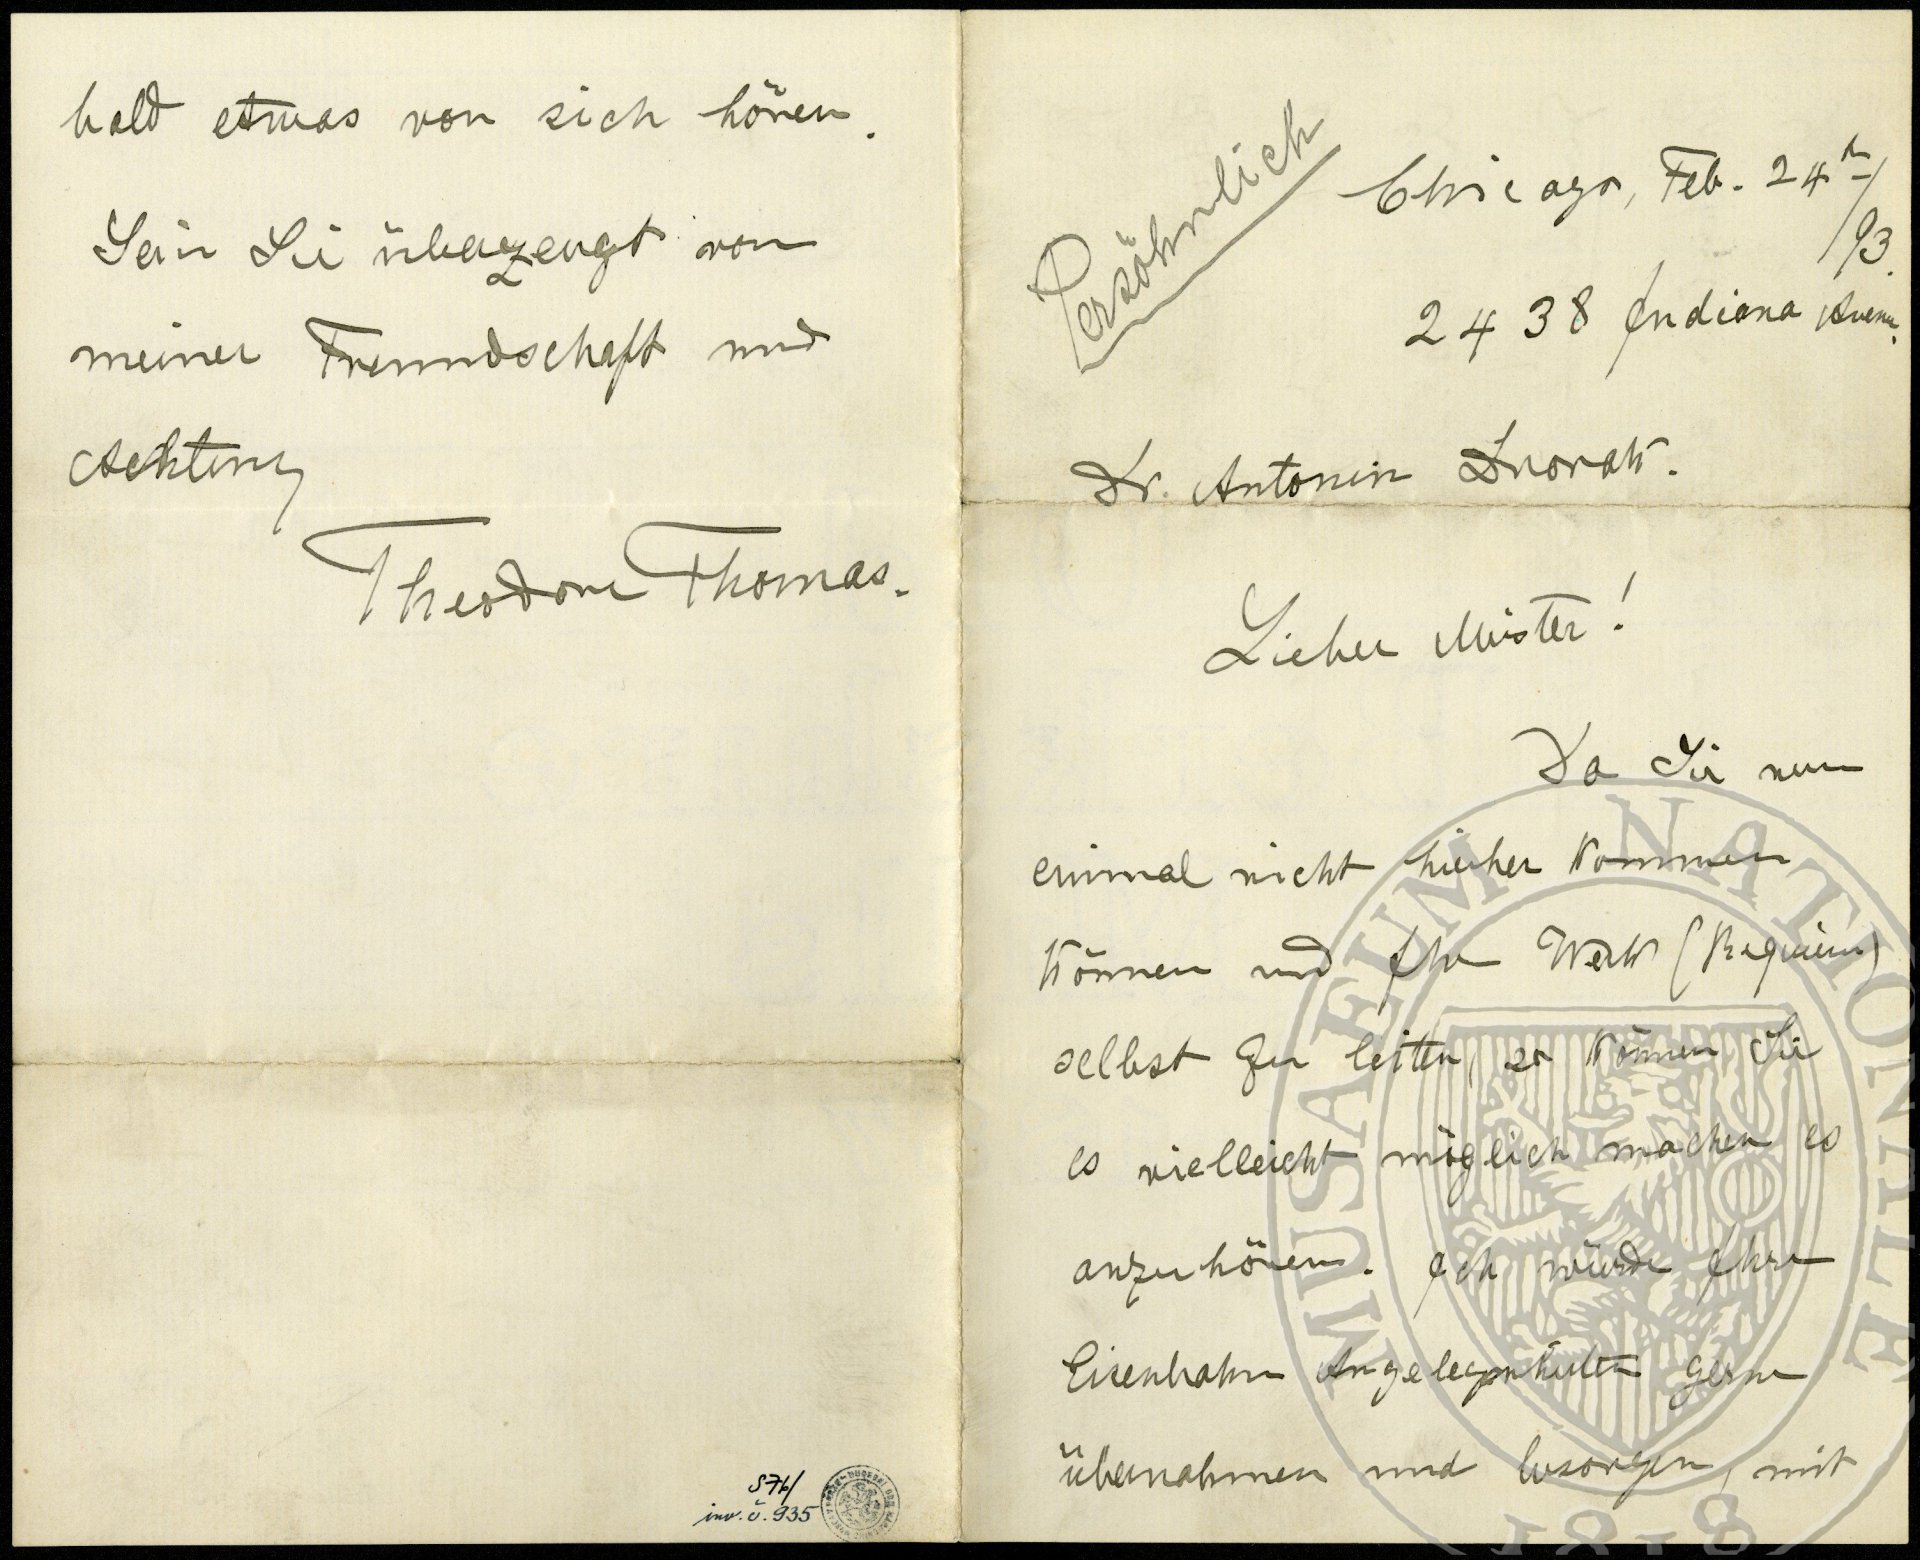 Persöhnlich
Chicago, Feb. 24th/
/93.
2438 Indiana Avenue.
Dr. Antonin Dvorak.
Lieber Meister!
Da Sie nun
einmal nicht hierher kommen
können und Ihr Werk (Requiem)
selbst zu leiten, so können Sie
es vielleicht möglich machen es
anzuhören. Ich würde Ihre
Eisenbahn Angelegenheiten gerne
übernahmen und besorgen, mit
bald etwas von sich hören.
Sein Sie überzeugt von
meiner Freundschaft und
Achtung
Theodore Thomas.
S76/
inv. č. 935
MUSAEUM NATIONALE
1818